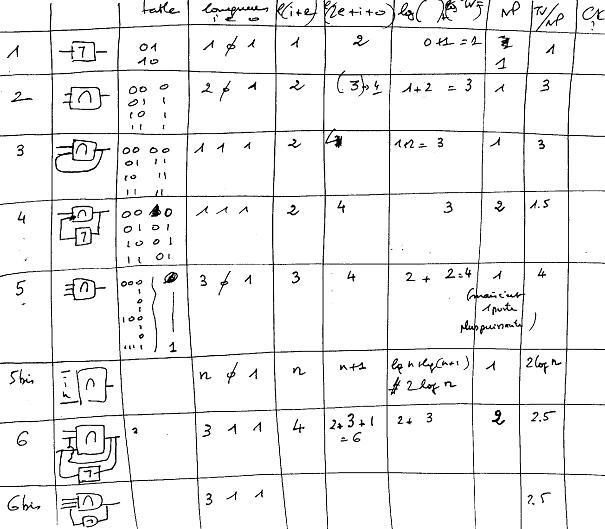 table longueurs l(i+e) l(2e+i+o) log( ) NP TV/NP
i e o
1 ¬ 01 1 ∅ 1 1 2 0+1=1 1 1
10
2 ∩ 00 0 2 ∅ 1 2 (3)→4 1+2 = 3 1 3
01 1
10 1
11 1
3 ∩ 00 00 1 1 1 2 1+2= 3 1 3
01 11
10 11
11 11
4 ∩ ¬ 00 00 1 1 1 2 4 3 2 1.5
01 01
10 01
11 01
5 ∩ 000 3 ∅ 1 3 4 2 + 2=4 1 4
100
111 1
1 porte
plus puissante)
5bis ∩ n ∅ 1 n n+1 log n+log(n+1) 1 2 log n
# 2 log n
6 ∩ ¬ 3 1 1 4 2+3+1 2+ 3 2 2.5
=6
6bis ∩ 3 1 1 2.5